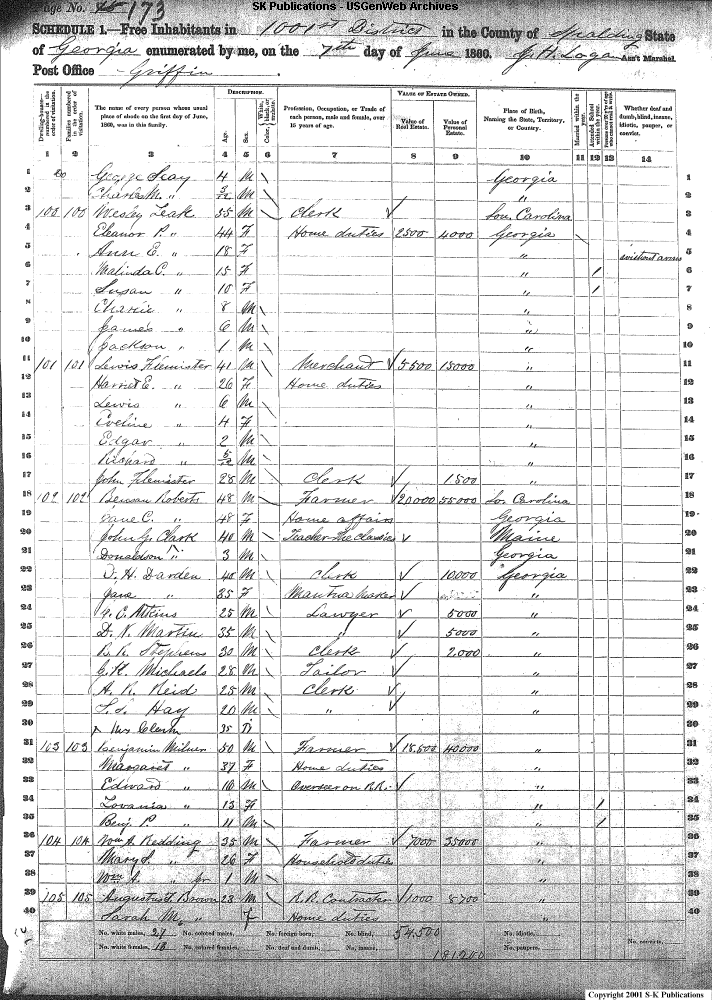 SK Publications - USGenWeb Archives
Page No. 173
SCHEDULE 1.—Free Inhabitants in 1001st District in the County of Spalding State
of Georgia enumerated by me, on the 7th day of June 1860. J. H. Logan Ass't Marshal.
Post Office Griffin
DESCRIPTION. VALUE OF ESTATE OWNED.
Dwelling-houses numbered in the order of visitation. Families numbered in the order of visitation. The name of every person whose usual place of abode on the first day of June, 1860, was in this family. Age. Sex. White, black, or mulatto. Color, Profession, Occupation, or Trade of each person, male and female, over 15 years of age. Value of Real Estate. Value of Personal Estate. Place of Birth, Naming the State, Territory, or Country. Married within the year. Attended School within the year. Whether deaf and dumb, blind, insane, idiotic, pauper, or convict.
1 2 3 4 5 6 7 8 9 10 11 12 13 14
1 George Seay 4 M \ Georgia 1
2 Charles M. " M \ " 2
3 100 100 Wesley Leak 55 M \ Clerk ✓ Sou. Carolina 3
4 Eleanor P. " 44 F Home duties 2500 4000 Georgia \ 4
5 Ann E. " 18 F " without arms 5
6 Malinda C. " 15 F " / 6
7 Susan " 10 F " / 7
8 " 8 M \ " 8
9 James " 6 M \ " 9
10 Jackson " 1 M \ " 10
11 101 101 Lewis Flemister 41 M \ Merchant ✓ 5500 15000 " 11
12 Harriet E. " 26 F Home duties " 12
13 Lewis " 6 M \ " 13
14 Eveline " 4 F " 14
15 Edgar " 2 M \ " 15
16 Richard " M \ " 16
17 John Flemister 28 M \ Clerk ✓ 1500 " 17
18 102 102 Benson Roberts 48 M \ Farmer ✓ 20000 55000 So. Carolina 18
19 Jane C. " 48 F Home affairs Georgia 19
20 John G. Clark 40 M \ Teacher the Classics ✓ Maine 20
21 Donaldson " 3 M \ Georgia 21
22 H. Darden 40 M \ Clerk ✓ 10.000 Georgia 22
23 Jane " 35 F Mantua Maker ✓ " 23
24 C. Atkins 25 M \ Lawyer ✓ 5000 " 24
25 D. N. Martin 35 M \ " ✓ 5000 " 25
26 R. R. Stephens 30 M \ Clerk ✓ 2.000 " 26
27 G. H. Michaels 28 M \ Tailor ✓ " 27
28 H. R. Reid 25 M \ Clerk ✓ " 28
29 Hay 20 M \ " ✓ " 29
30 Mrs 35 30
31 103 103 Benjamin Milner 50 M \ Farmer ✓ 18.500 40000 " 31
32 Margaret " 37 F Home duties " 32
33 Edward " 16 M \ Overseer on R.R. ✓ " 33
34 Lovania " 13 F " / 34
35 Benj. P. " 11 M \ " / 35
36 104 104 Wm A. Redding 35 M \ Farmer ✓ 7000 35000 " 36
37 Mary S. " 26 F Household duties " 37
38 Wm A. " Jr 1 M \ " 38
39 105 105 Augustus F. Brown 23 M \ R.R. Contractor ✓ 1000 8700 " 39
40 Sarah M. " F Home duties " 40
No. white males, 27 No. colored males, No. foreign born, No. blind, 54.500 No. idiotic,
No. white females, No. colored females, No. deaf and dumb, No. insane, 181200 No. paupers, No. convicts,
Copyright 2001 S-K Publications